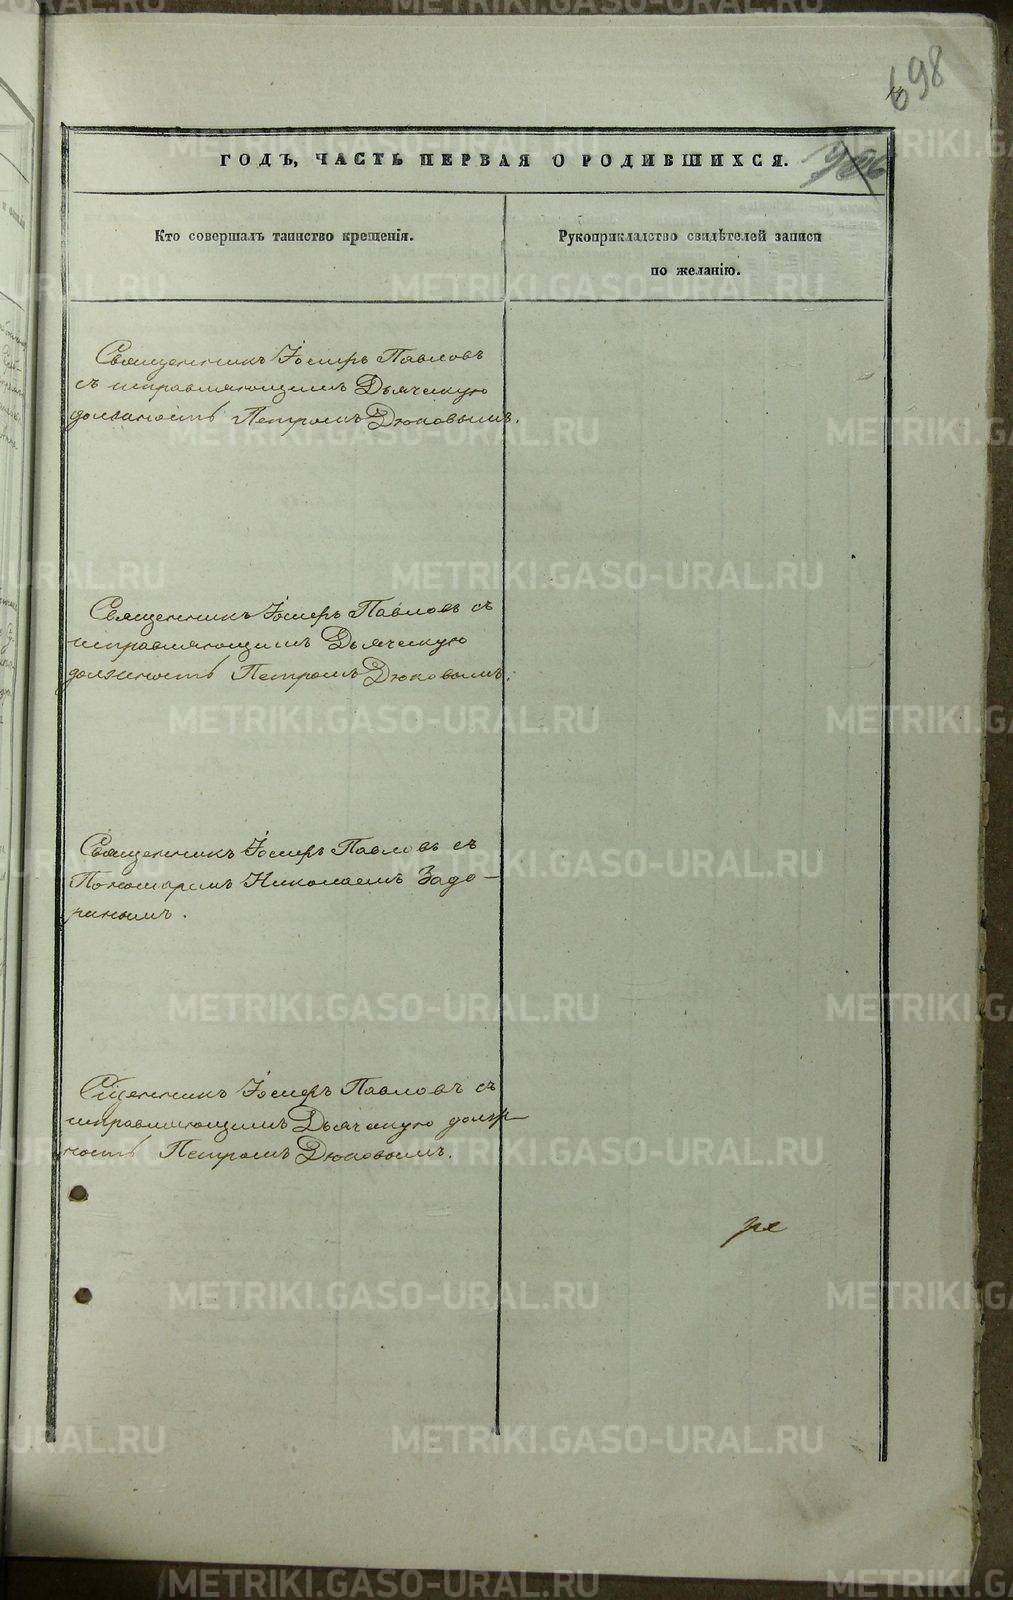 698
ГОДЪ, ЧАСТЬ ПЕРВАЯ О РОДИВШИХСЯ.
Кто совершалъ таинство крещенія.
Рукоприкладство свидѣтелей записи
по желанію.
Священникъ Іосифъ Павловъ
съ исправляющимъ Дьяческую
должность Петромъ Дюковымъ.
Священникъ Іосифъ Павловъ съ
исправляющимъ Дьяческую
должность Петромъ Дюковымъ.
Священникъ Іосифъ Павловъ съ
Пономаремъ Николаемъ Задо-
ринымъ.
Сщенникъ Іосифъ Павловъ съ
исправляющимъ Дьяческую долж-
ность Петромъ Дюковымъ.
METRIKI.GASO-URAL.RU